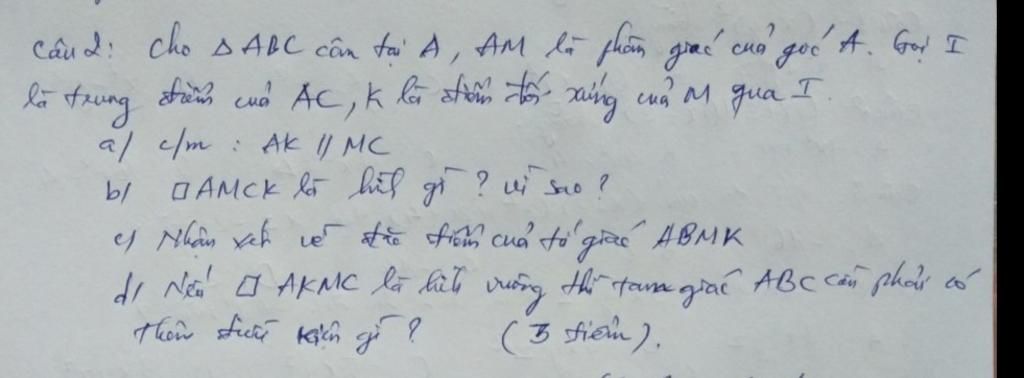 Câu 2: Cho △ ABC cân tại A, AM là phân giác của góc A. Gọi I
là trung điểm của AC, K là điểm đối xứng của M qua I.
a/ c/m : AK // MC
b/ □AMCK là hình gì ? vì sao ?
c/ Nhận xét về đặc điểm của tứ giác ABMK
d/ Nếu □ AKMC là hình vuông thì tam giác ABC cần phải có
thêm điều kiện gì ? (3 điểm).